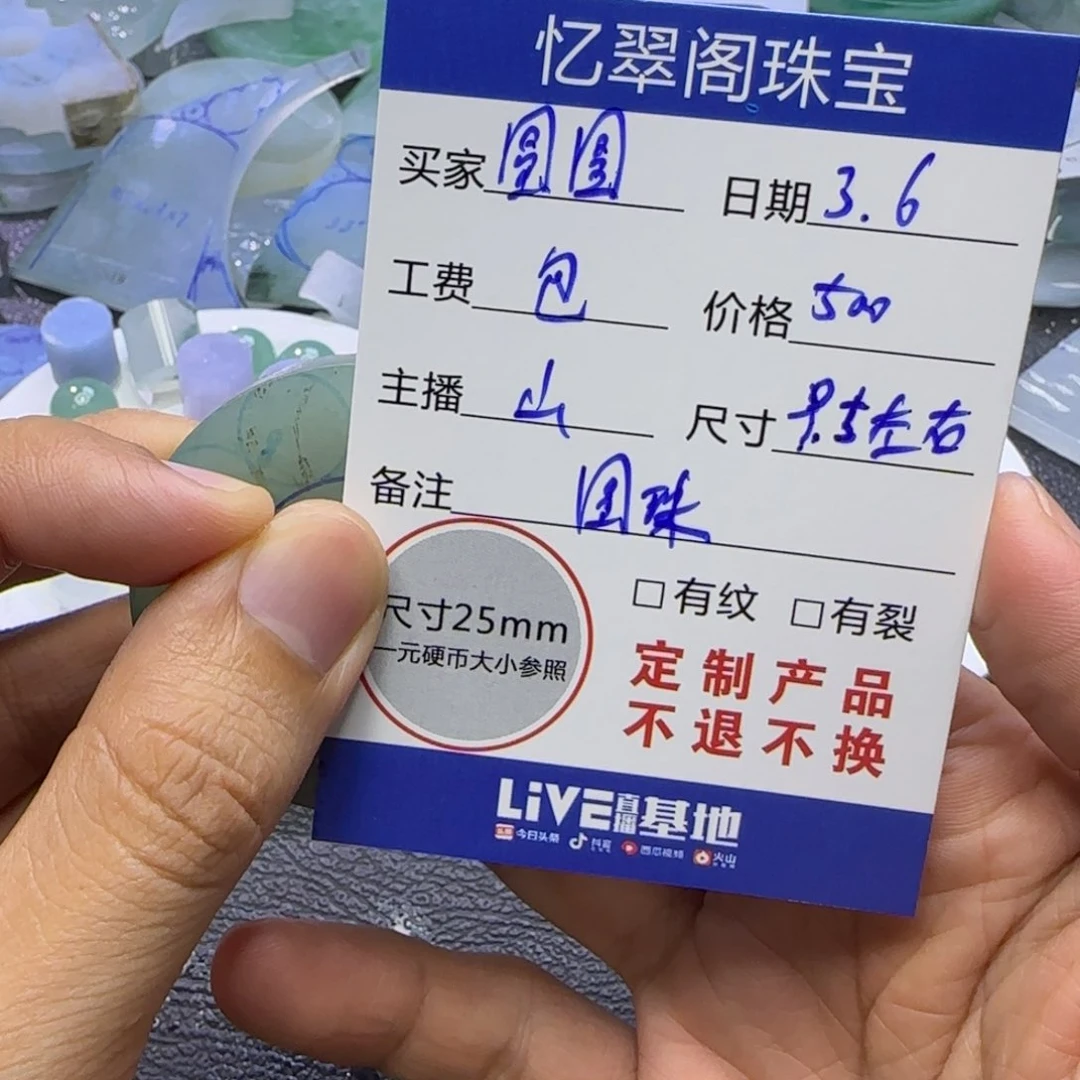 忆翠阁珠宝
买家 圆圆 日期 3.6
工费 包 价格 500
主播 山 尺寸 8.5左右
备注 圆珠
尺寸25mm
一元硬币大小参照
□有纹 □有裂
定制产品
不退不换
LiVE直播基地
今日头条 抖音 西瓜视频 火山